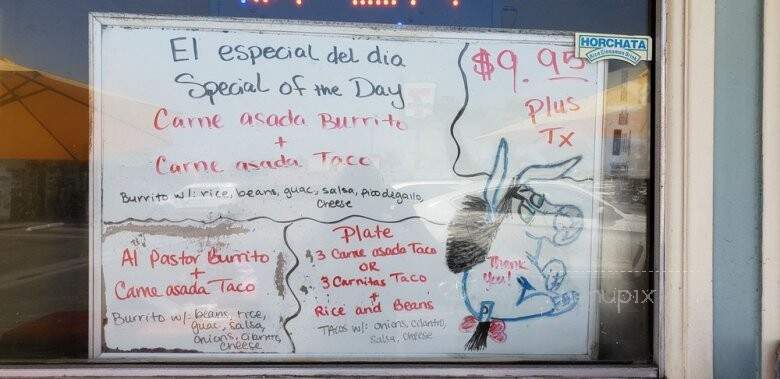 El especial del dia
Special of the Day
Carne asada Burrito
+
Carne asada Taco
Burrito w/: rice, beans, guac, salsa, pico degallo,
cheese
$9.95
plus
Tx
HORCHATA
Rice Cinnamon Drink
Al Pastor Burrito
+
Carne asada Taco
Burrito w/: beans, rice,
guac, salsa,
onions, cilantro,
cheese
Plate
3 Carne asada Taco
OR
3 Carnitas Taco
+
Rice and Beans
TAcos w/: onions, cilantro,
salsa, cheese
Thank
you!